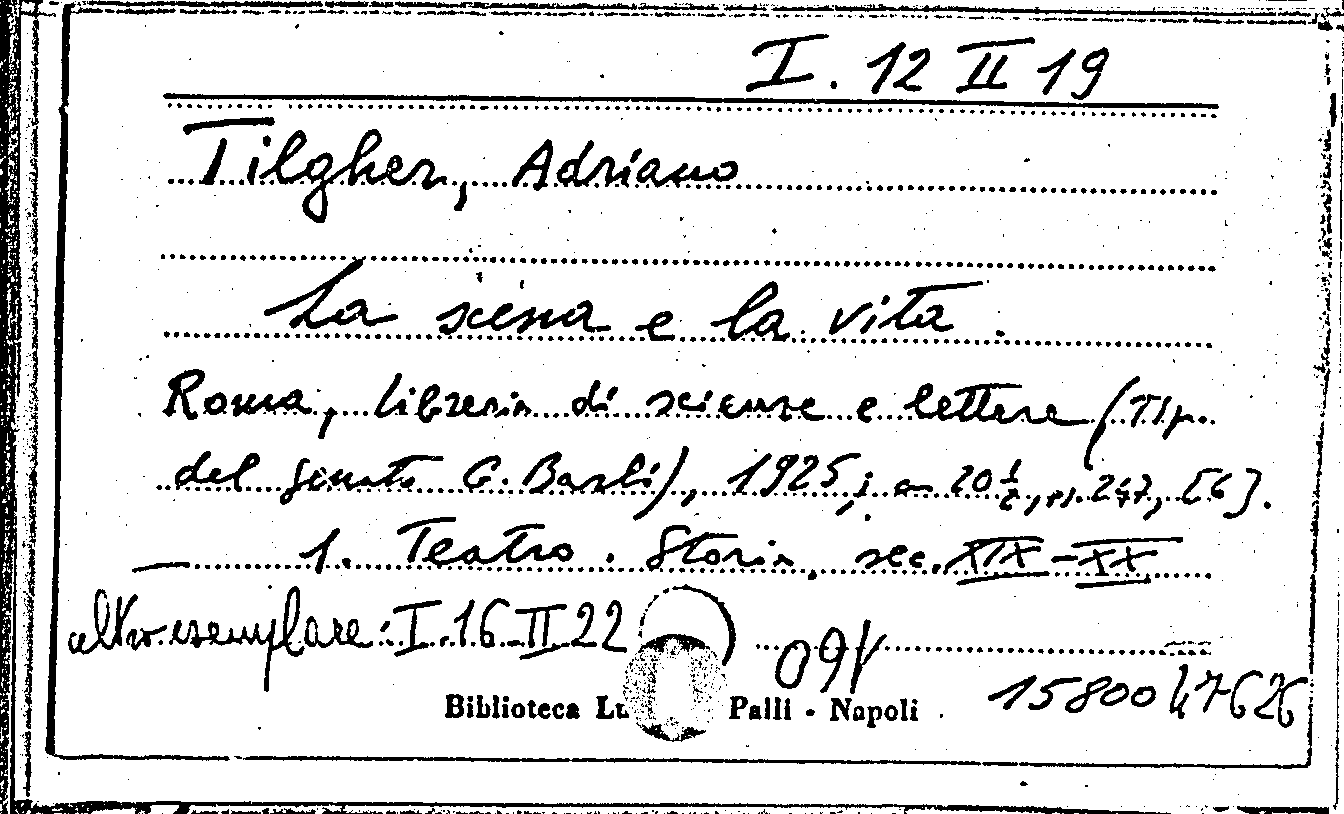 I. 12 II 19
Tilgher, Adriano
La scena e la vita.
Roma, libreria di scienze e lettere (Tip.
del Senato G. Bardi), 1925, in 20 ½, pp. 247, [6].
1. Teatro. Storia, sec. XIX-XX
altro esemplare: I.16 II 22
09V
Biblioteca Lu Palli - Napoli
15800 47626